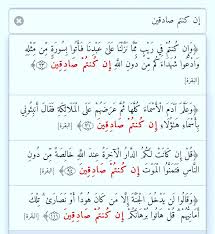 إن كنتم صادقين
﴿وَإِن كُنتُمْ فِي رَيْبٍ مِّمَّا نَزَّلْنَا عَلَىٰ عَبْدِنَا فَأْتُوا بِسُورَةٍ مِّن مِّثْلِهِ
وَادْعُوا شُهَدَاءَكُم مِّن دُونِ اللَّهِ إِن كُنتُمْ صَادِقِينَ ﴿٢٣﴾﴾
[البقرة]
﴿وَعَلَّمَ آدَمَ الْأَسْمَاءَ كُلَّهَا ثُمَّ عَرَضَهُمْ عَلَى الْمَلَائِكَةِ فَقَالَ أَنبِئُونِي
بِأَسْمَاءِ هَٰؤُلَاءِ إِن كُنتُمْ صَادِقِينَ ﴿٣١﴾﴾ [البقرة]
﴿قُلْ إِن كَانَتْ لَكُمُ الدَّارُ الْآخِرَةُ عِندَ اللَّهِ خَالِصَةً مِّن دُونِ
النَّاسِ فَتَمَنَّوُا الْمَوْتَ إِن كُنتُمْ صَادِقِينَ ﴿٩٤﴾﴾ [البقرة]
﴿وَقَالُوا لَن يَدْخُلَ الْجَنَّةَ إِلَّا مَن كَانَ هُودًا أَوْ نَصَارَىٰ تِلْكَ
أَمَانِيُّهُمْ قُلْ هَاتُوا بُرْهَانَكُمْ إِن كُنتُمْ صَادِقِينَ ﴿١١١﴾﴾ [البقرة]